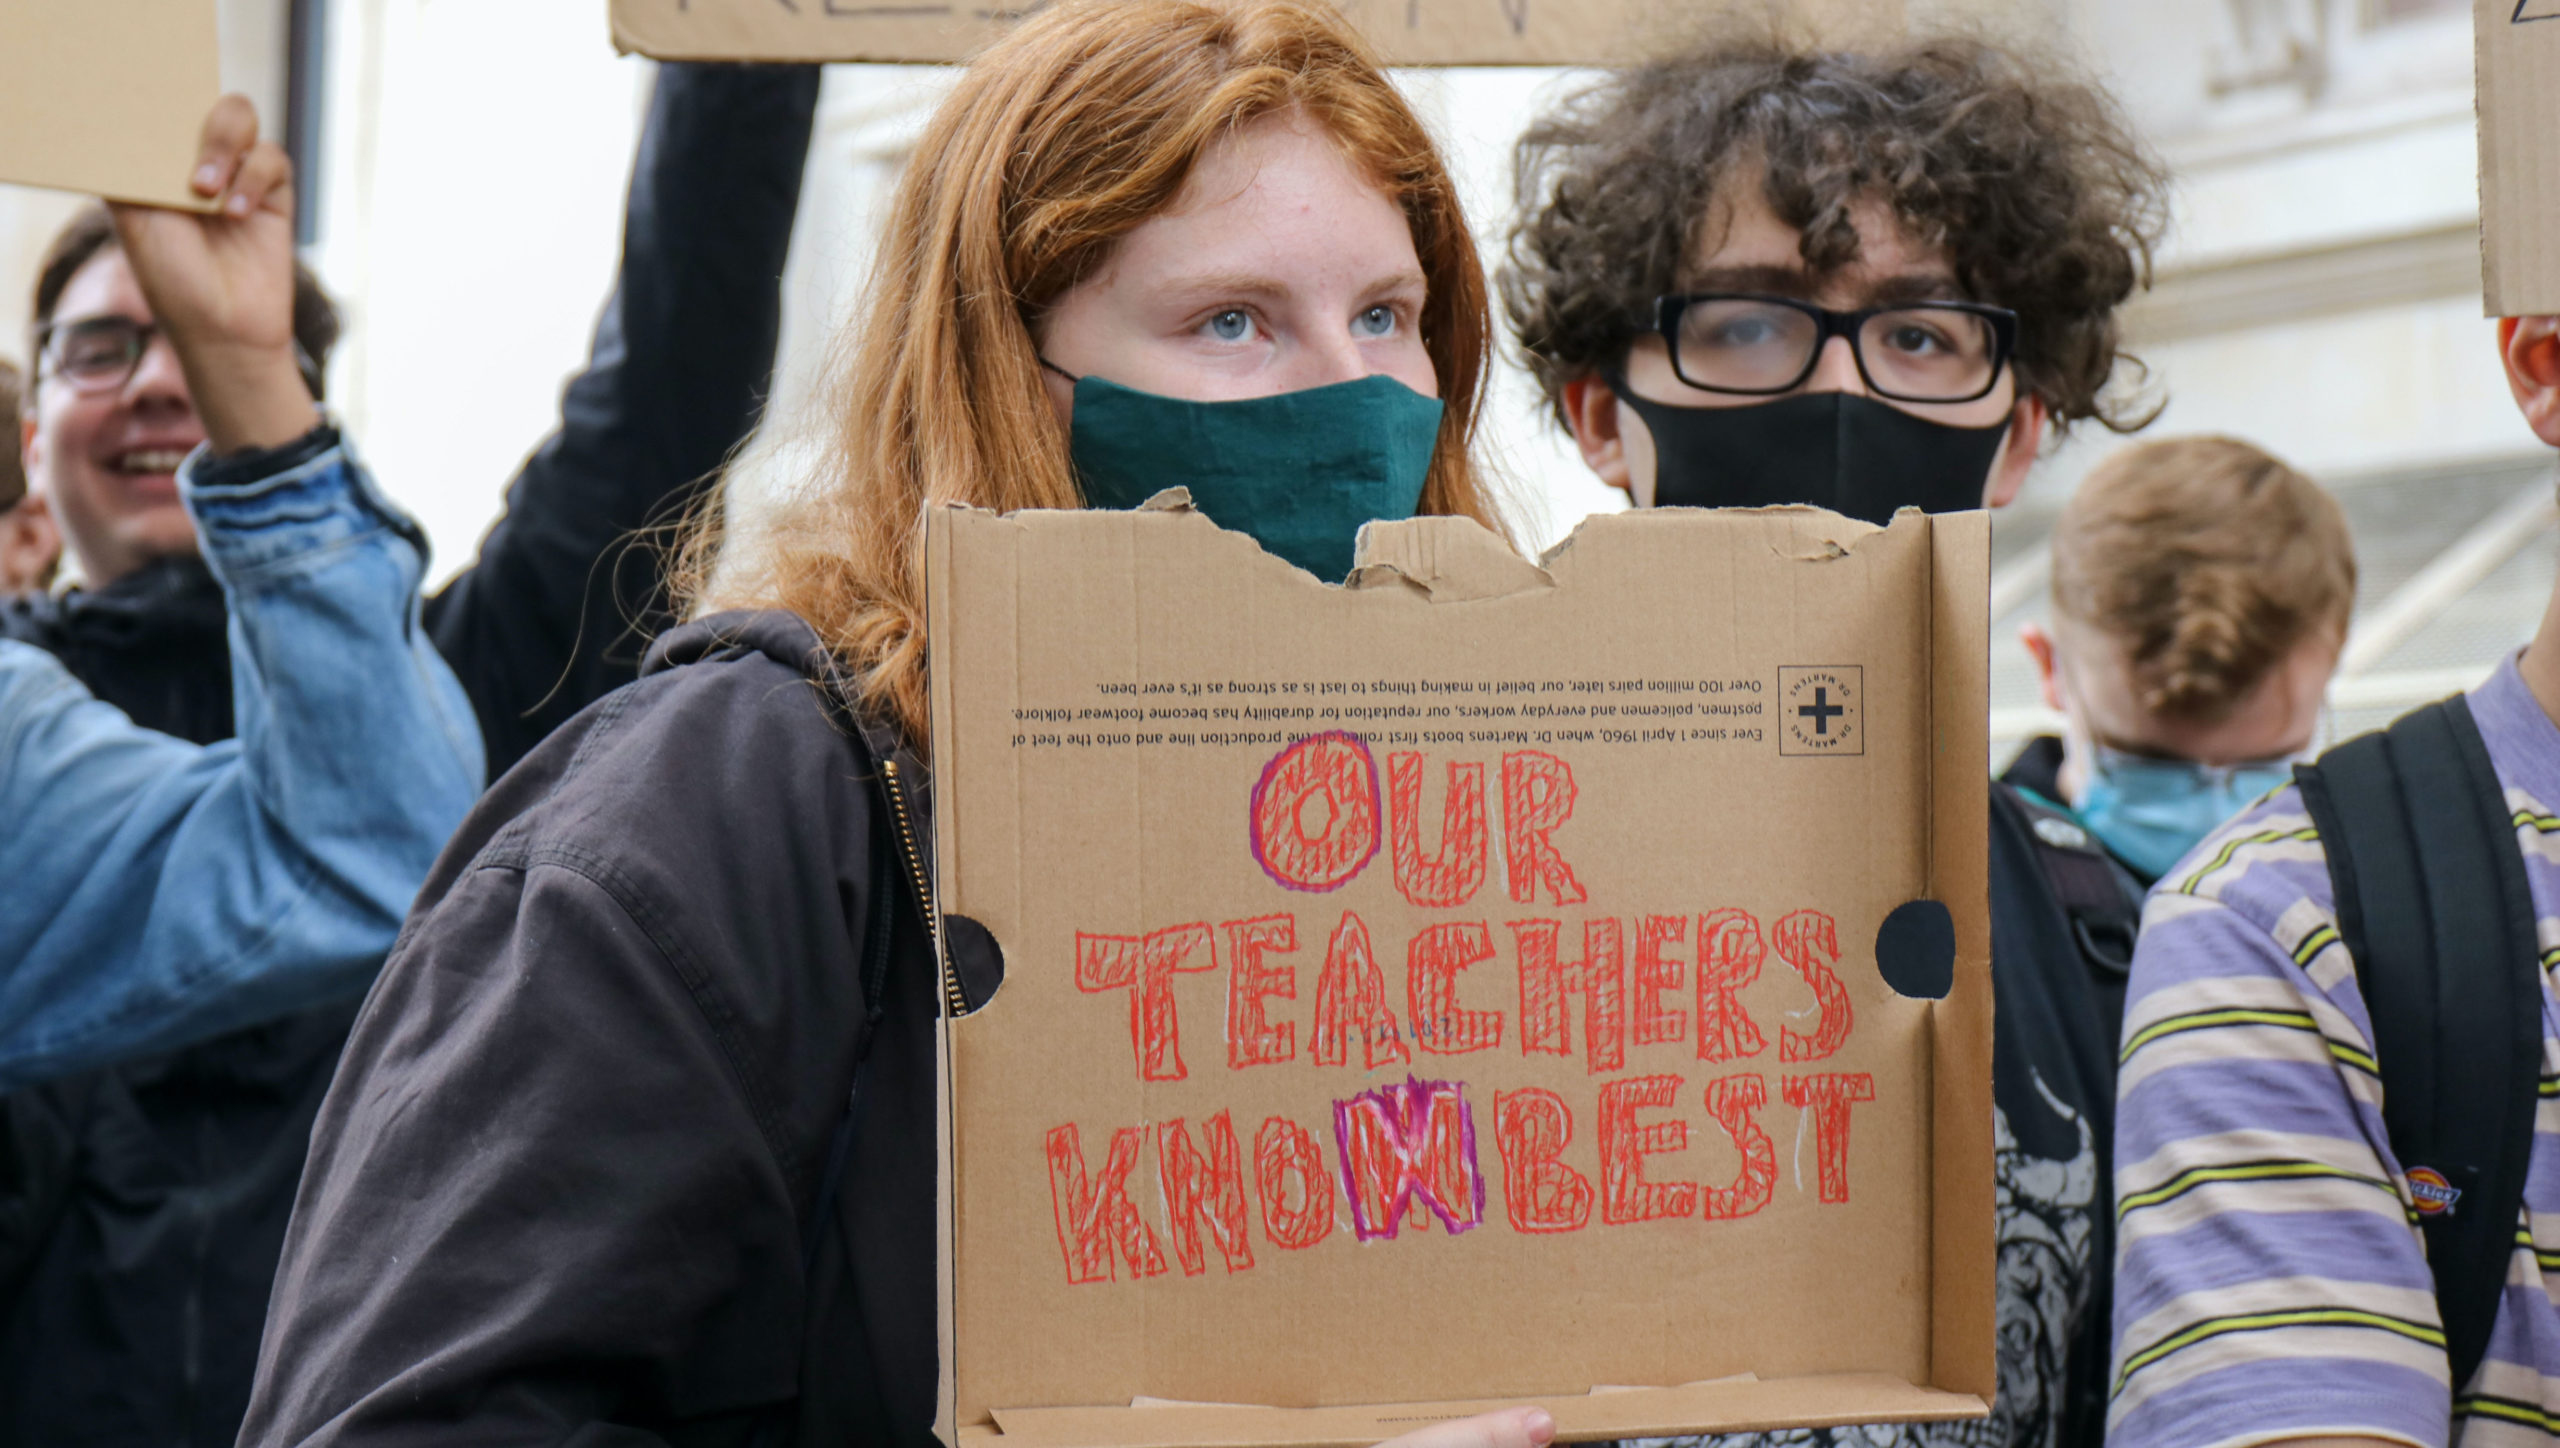 Over 100 million pairs later, our belief in making things to last is as strong as it's ever been.
postmen, policemen and everyday workers, our reputation for durability has become footwear folklore.
Ever since 1 April 1960, when Dr. Martens boots first rolled off the production line and onto the feet of
DR MARTENS
DR MARTENS
OUR
TEACHERS
KNOW BEST
Dickies